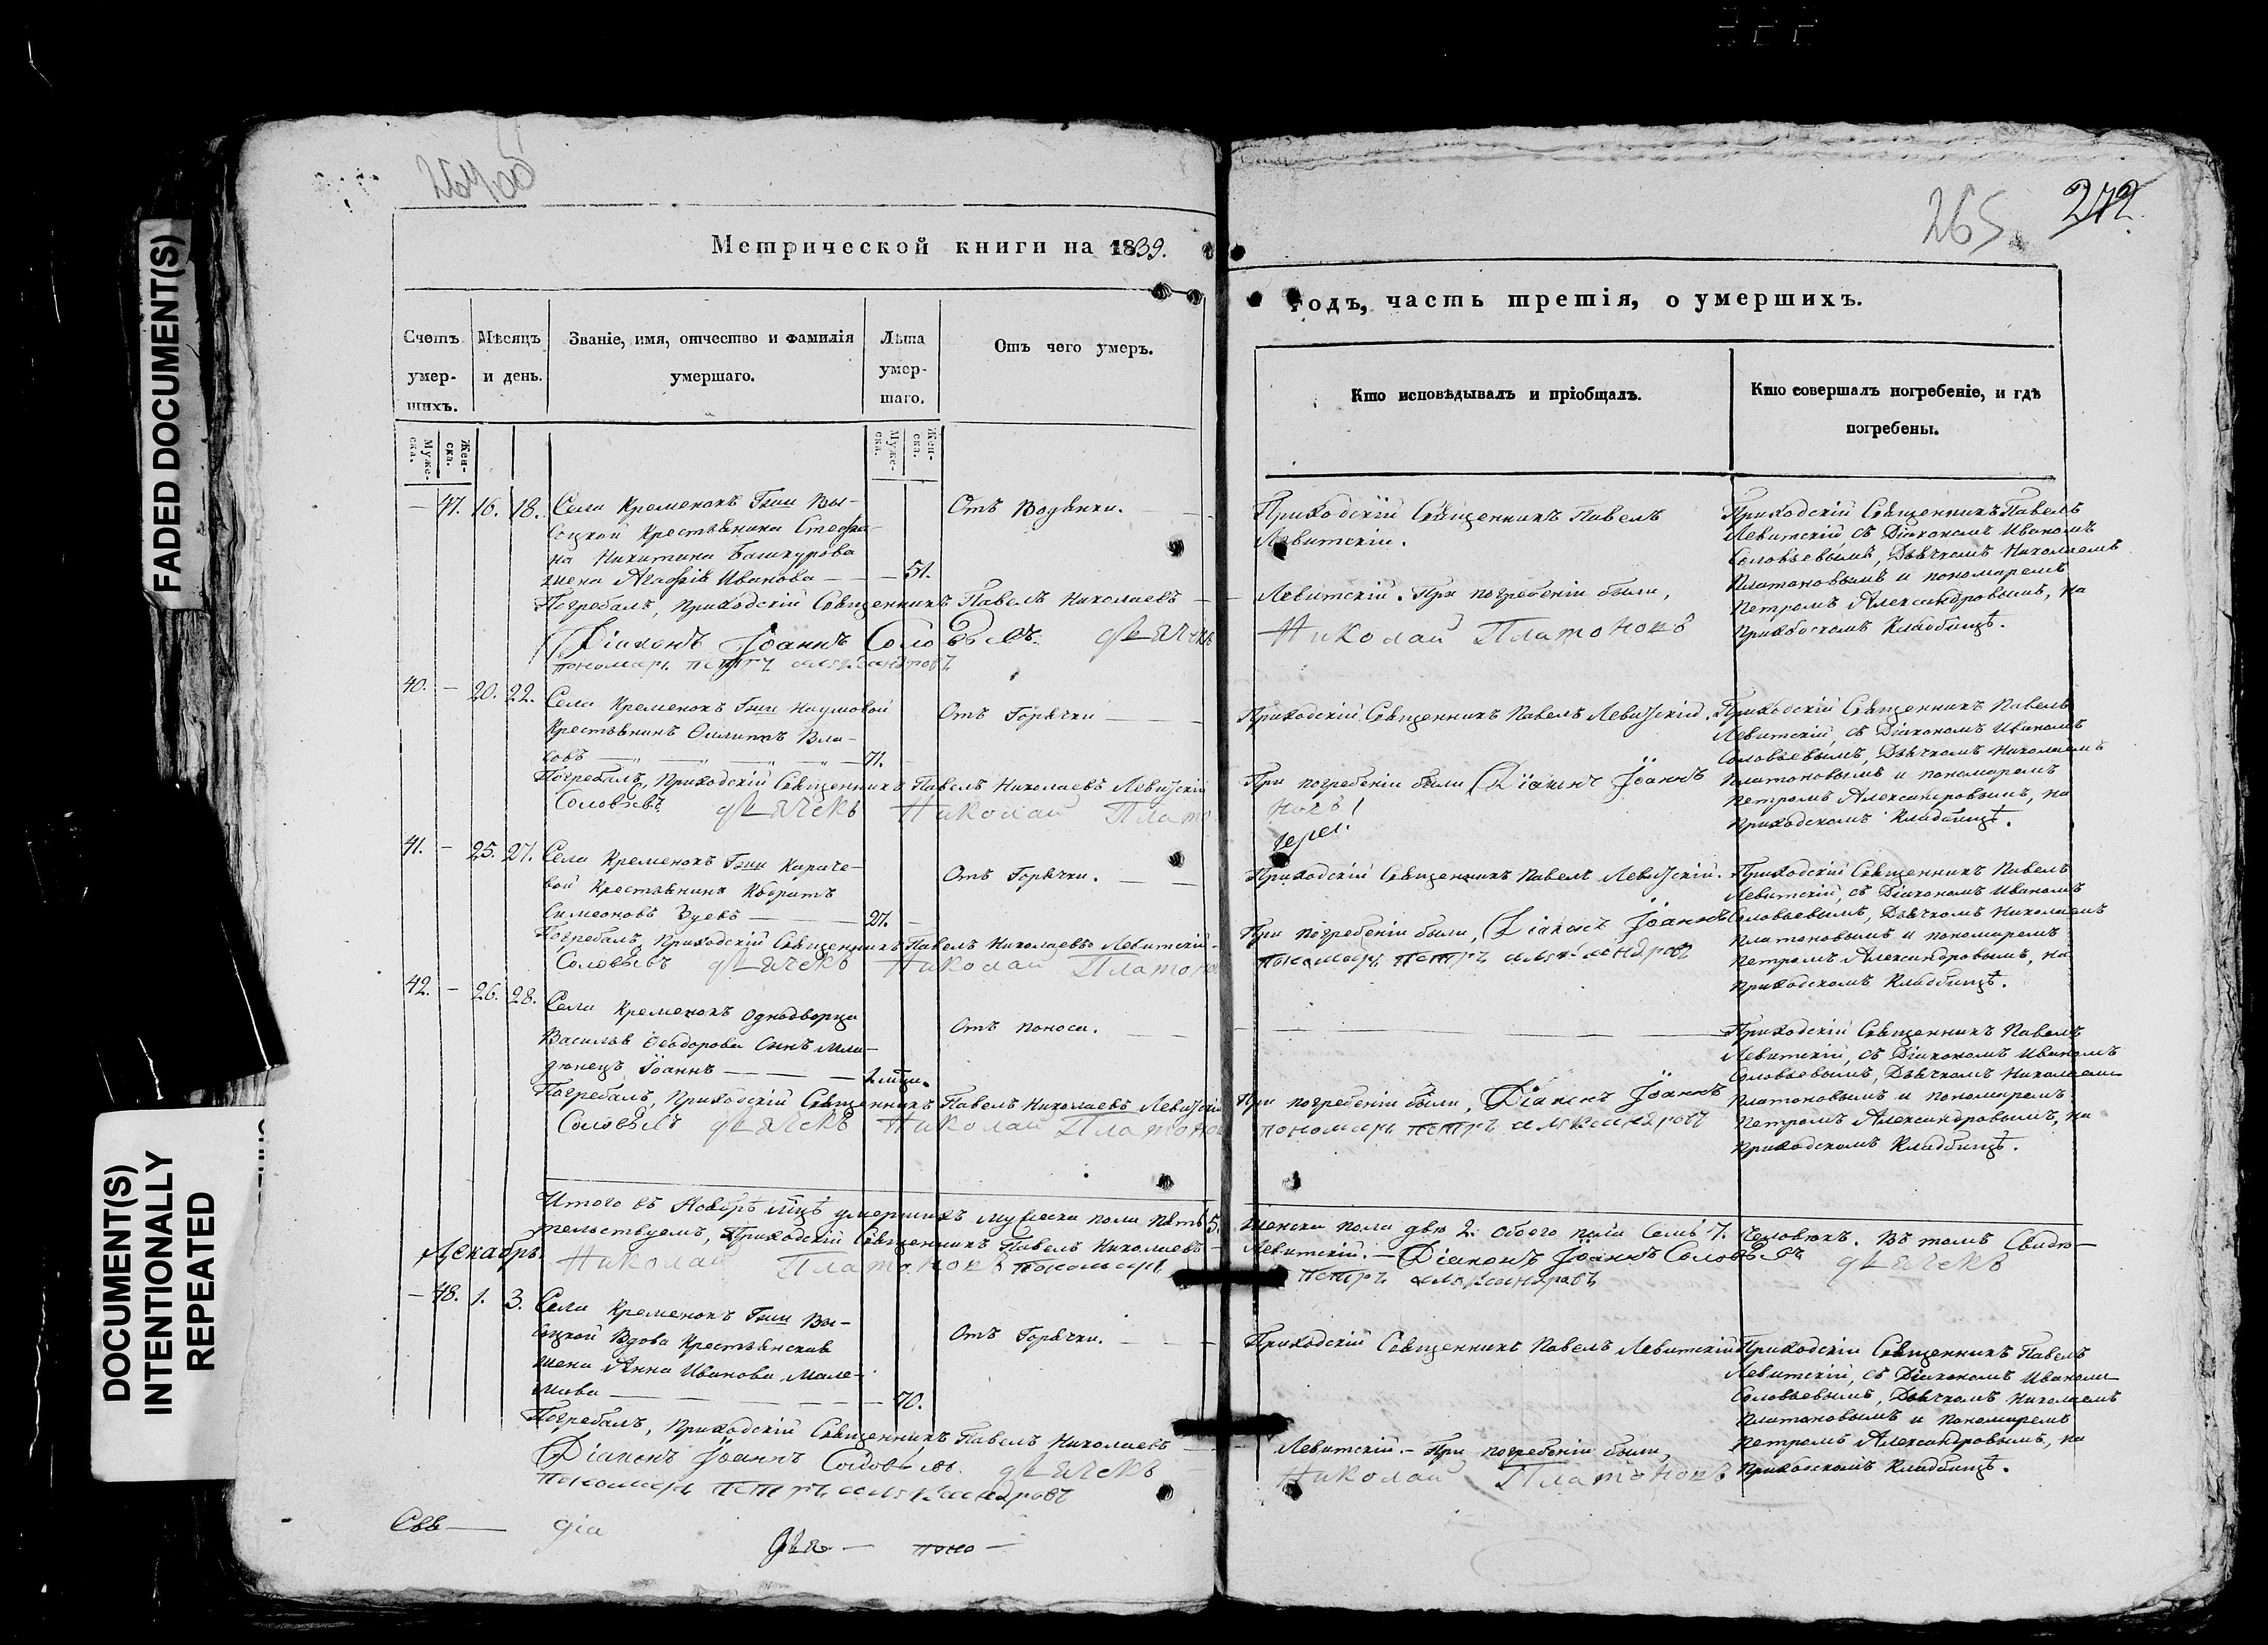 FADED DOCUMENT(S)
DOCUMENT(S)
INTENTIONALLY
REPEATED
264об
Метрической книги на 1839.
Счетъ умер-шихъ.
Мѣсяцъ и день.
Званіе, имя, отчество и фамилія умершаго.
Лѣта умер-шаго.
Отъ чего умеръ.
Муже-ска.
Жен-ска.
Муже-ска.
Жен-ска.
— 47. 16. 18. Села Кременокъ Гжи Вы-
соцкой Крестьянина Стефа-
на Никитина Башкурова
жена Агафія Иванова — — 51.
Отъ Водянки.
Погребалъ, Приходскій Священникъ Павелъ Николаевъ
Діаконъ Іоаннъ Соловьевъ. дьячекъ
пономарь петръ александровъ
40. — 20. 22. Села Кременокъ Гжи Наумовой
Крестьянинъ Филиппъ Вла-
совъ — 71.
Отъ Горячки
Погребалъ, Приходскій Священникъ Павелъ Николаевъ Левитскій
Соловьевъ дьячекъ Николай Плато
41. — 25. 27. Села Кременокъ Гжи Кираче-
вой Крестьянинъ Кодратъ
Симеоновъ Зуевъ — 27.
Отъ Горячки.
Погребалъ, Приходскій Священникъ Павелъ Николаевъ Левитскій
Соловьевъ дьячекъ Николай Платоно
42. — 26. 28. Села Кременокъ Однодворца
Василья Ѳеодорова Сынъ мла-
денецъ Іоаннъ —
Отъ поноса.
Погребалъ, Приходскій Священникъ Павелъ Николаевъ Левитскій
Соловьевъ дьячекъ Николай Платоно
Итого въ Ноябрѣ мцѣ умершихъ мужеска пола пять 5.
тельствуемъ, Приходскій Священникъ Павелъ Николаевъ
Декабрь.
Николай Платоновъ пономарь
— 48. 1. 3. Села Кременокъ Гжи Вы-
соцкой Вдова Крестьянская
жена Анна Иванова Мале-
 — 70.
Отъ Горячки.
Погребалъ, Приходскій Священникъ Павелъ Николаевъ
Діаконъ Іоаннъ Соловьевъ. дьячекъ
пономарь петръ александровъ
Свя— діа
дья — поно —
265 272.
годъ, часть третія, о умершихъ.
Кто исповѣдывалъ и пріобщалъ.
Кто совершалъ погребеніе, и гдѣ погребены.
Приходскій Священникъ Павелъ
Левитскій.
Левитскій. При погребеніи были,
Николай Платоновъ
Приходскій Священникъ Павелъ
Левитскій, съ Діакономъ Иваномъ
Соловьевымъ, Дьячкомъ Николаемъ
Платоновымъ и пономаремъ
Петромъ Александровымъ, на
Приходскомъ Кладбищѣ.
Приходскій Священникъ Павелъ Левитскій.
При погребеніи были Діаконъ Іоаннъ
новъ
Приходскій Священникъ Павелъ
Левитскій, съ Діакономъ Иваномъ
Соловьевымъ, Дьячкомъ Николаемъ
Платоновымъ и пономаремъ
Петромъ Александровымъ, на
Приходскомъ Кладбищѣ.
Приходскій Священникъ Павелъ Левитскій.
При погребеніи были, Діаконъ Іоаннъ
пономарь петръ александровъ
Приходскій Священникъ Павелъ
Левитскій, съ Діакономъ Иваномъ
Соловьевымъ, Дьячкомъ Николаемъ
Платоновымъ и пономаремъ
Петромъ Александровымъ, на
Приходскомъ Кладбищѣ.
При погребеніи были, Діаконъ Іоаннъ
пономарь петръ александровъ
Приходскій Священникъ Павелъ
Левитскій, съ Діакономъ Иваномъ
Соловьевымъ, Дьячкомъ Николаемъ
Платоновымъ и пономаремъ
Петромъ Александровымъ, на
Приходскомъ Кладбищѣ.
женска пола двѣ 2. обоего пола Семь 7. Человѣкъ. Въ томъ Свидѣ—
Левитскій. — Діаконъ Іоаннъ Соловьевъ дьячекъ
петръ александровъ
Приходскій Священникъ Павелъ Левитскій
Левитскій. — При погребеніи были,
Николай Платоновъ
Приходскій Священникъ Павелъ
Левитскій, съ Діакономъ Иваномъ
Соловьевымъ, Дьячкомъ Николаемъ
Платоновымъ и Пономаремъ
Петромъ Александровымъ, на
Приходскомъ Кладбищѣ.